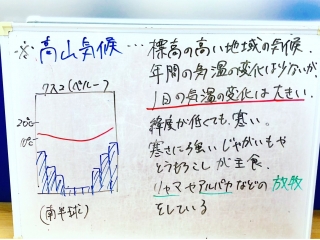 ※高山気候…標高の高い地域の気候.
年間の気温の変化は少ないが、
1日の気温の変化は大きい.
緯度が低くても、寒い。
寒さに強いじゃがいもや
とうもろこしが主食.
リャマやアルパカなどの放牧
をしている
クスコ(ペルー)
20℃
10℃
(南半球)